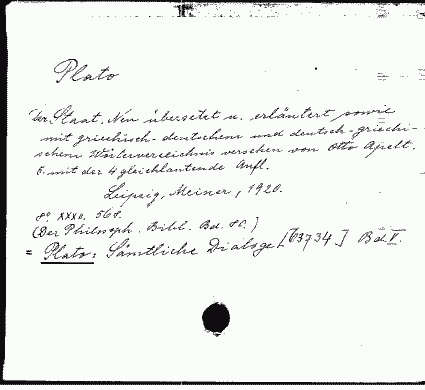 Plato
Der Staat. Neu übersetzt u. erläutert sowie
mit griechisch-deutschem und deutsch-griechi-
schem Wörterverzeichnis versehen von Otto Apelt.
6. mit der 4 gleichlautende Aufl.
Leipzig, Meiner, 1920.
8° XXXII. 568.
(Der Philosoph. Bibl. Bd. 80.)
= Plato: Sämtliche Dialoge [63734] Bd. V.